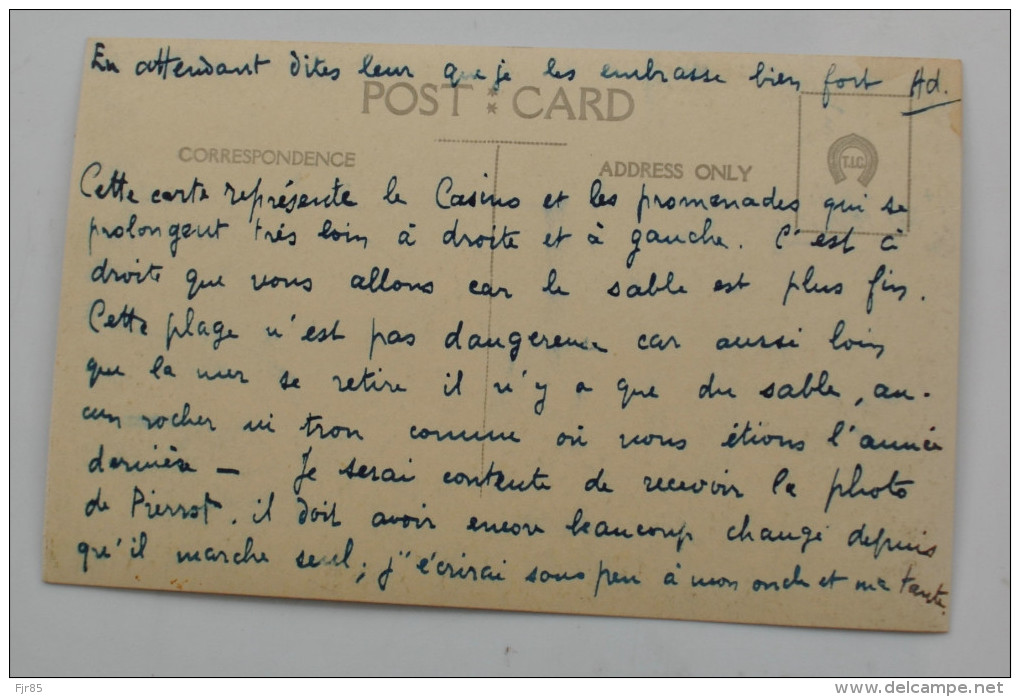 En attendant dites leur que je les embrasse bien fort Ad.
POST CARD
CORRESPONDENCE
ADDRESS ONLY
T.I.C.
Cette carte représente le Casino et les promenades qui se
prolongent très loin à droite et à gauche. C'est à
droite que nous allons car le sable est plus fin.
Cette plage n'est pas dangereuse car aussi loin
que la mer se retire il n'y a que du sable, au-
cun rocher ni trou comme où nous étions l'année
dernière — Je serai contente de recevoir la photo
de Pierrot. il doit avoir encore beaucoup changé depuis
qu'il marche seul; j'écrirai sous peu à mon oncle et ma tante.
Fjr85
www.delcampe.net